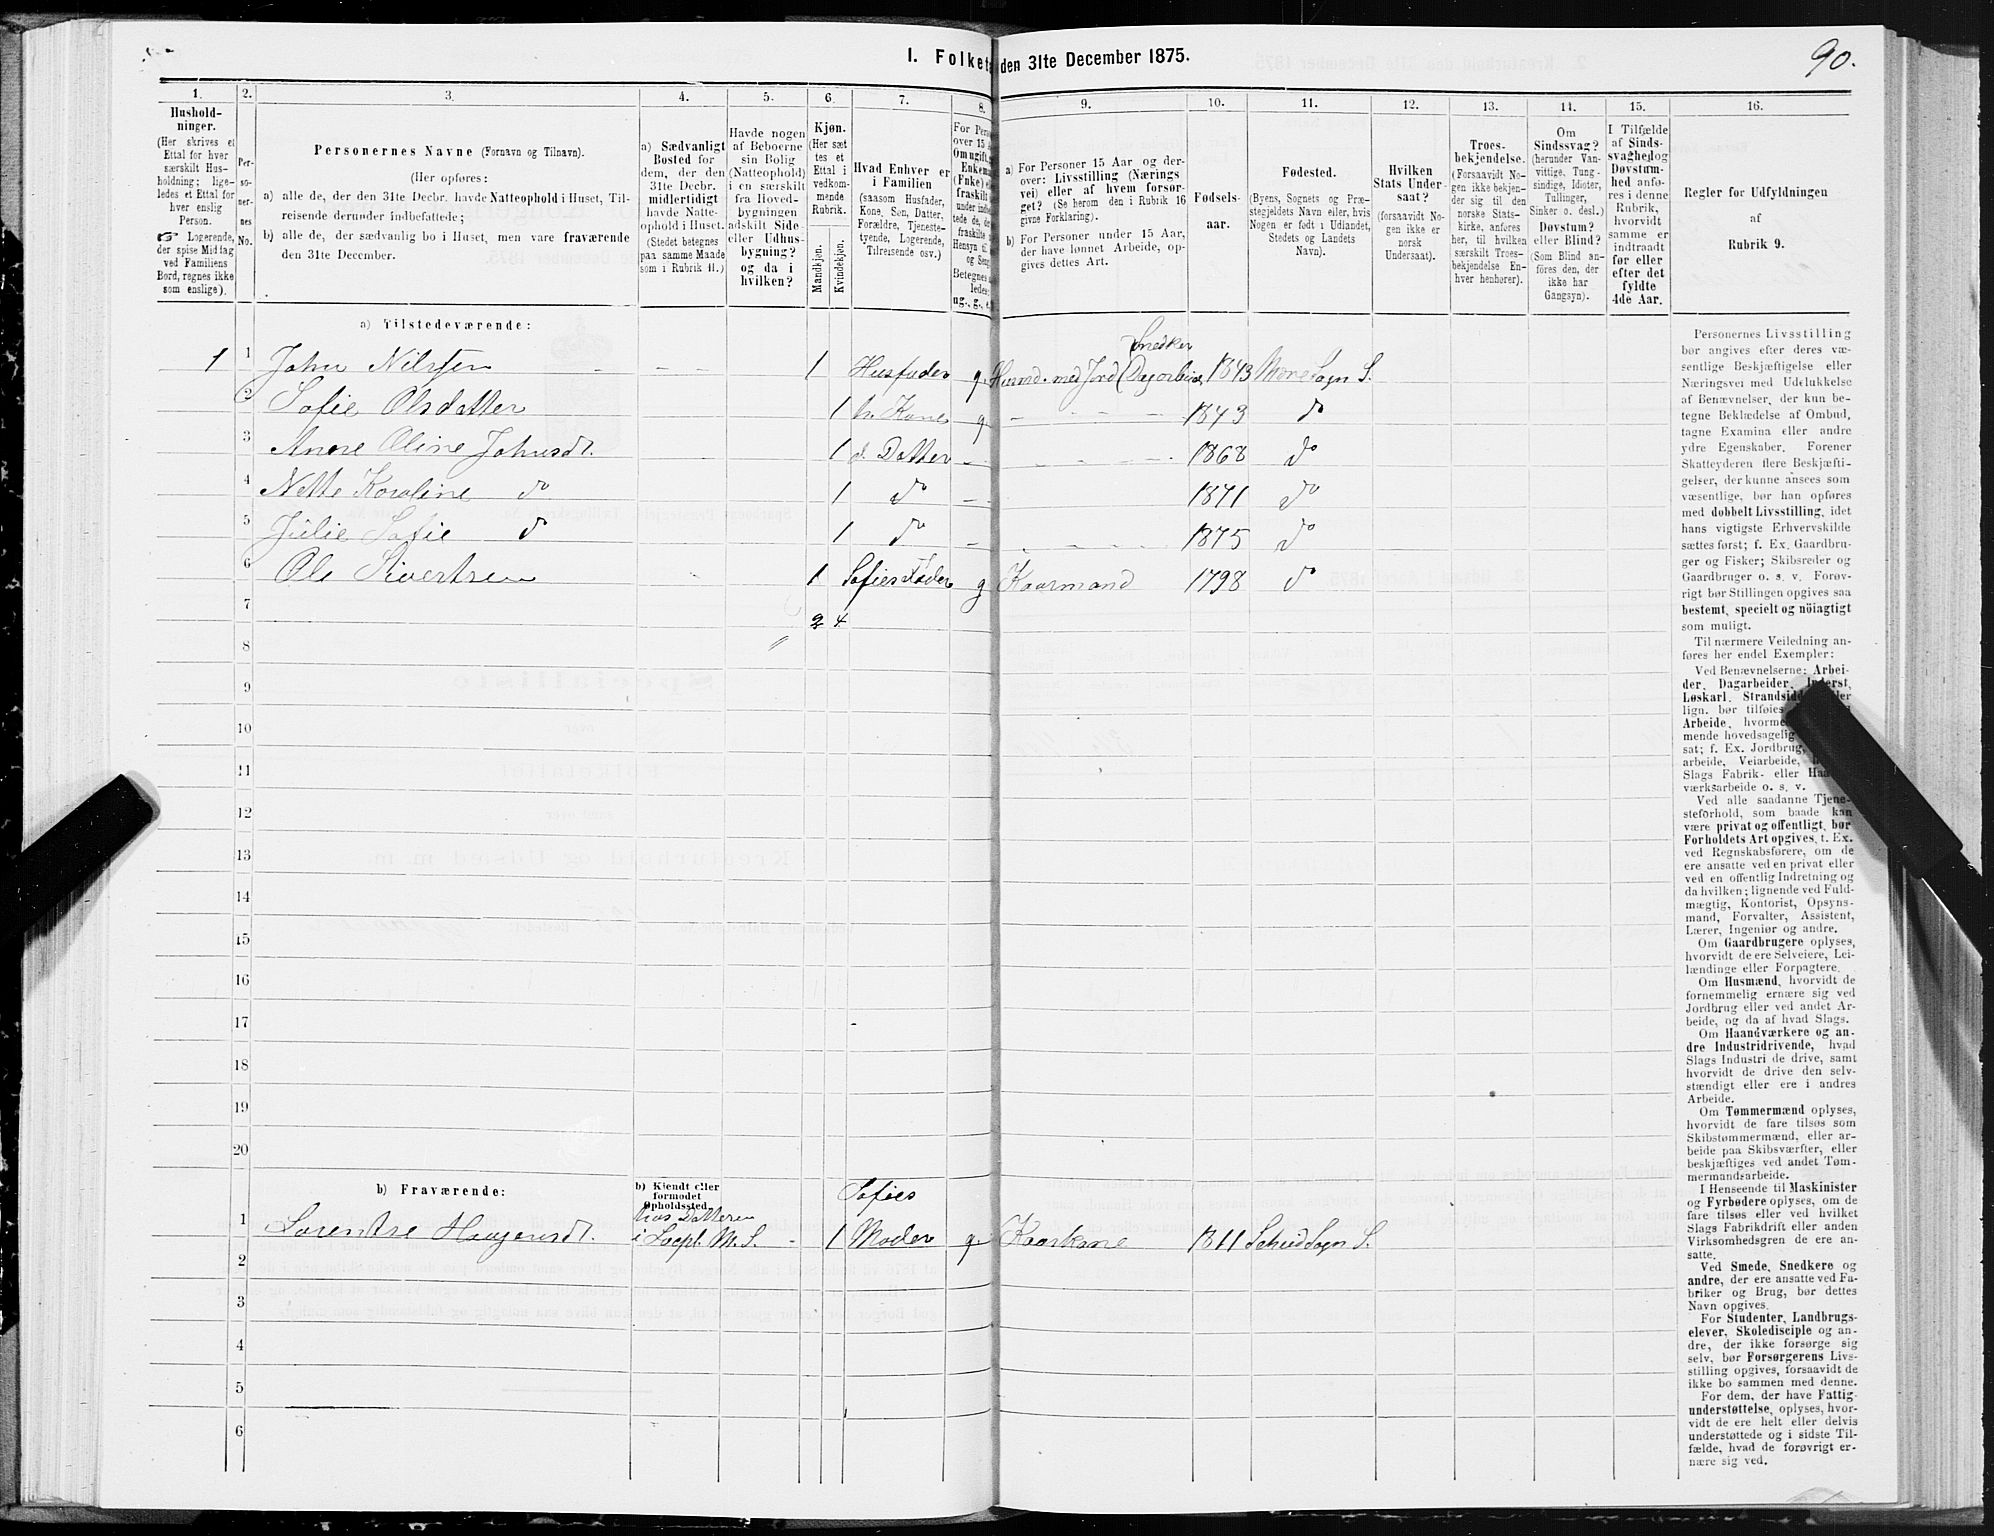 I. Folket den 31te December 1875.
90.
1.
2.
3.
4.
5.
6.
7.
8.
9.
10.
11.
12.
13.
14.
15.
16.
Hushold-
ninger.
(Her skrives et
Ettal for hver
særskilt Hus-
holdning; lige-
ledes et Ettal for
hver enslig
Person.
☞ Logerende,
der spise Middag
ved Familiens
Bord, regnes ikke
som enslige).
Per-
so-
ner-
nes
No.
Personernes Navne (Fornavn og Tilnavn).
(Her opføres:
a) alle de, der den 31te Decbr. havde Natteophold i Huset, Til-
reisende derunder indbefattede;
b) alle de, der sædvanlig bo i Huset, men vare fraværende
den 31te December.
a) Sædvanligt
Bosted for
dem, der den
31te Decbr.
midlertidigt
havde Natte-
ophold i Huset.
(Stedet betegnes
paa samme Maade
som i Rubrik 11.)
Havde nogen
af Beboerne
sin Bolig
(Natteophold)
i en særskilt
fra Hoved-
bygningen
adskilt Side-
eller Udhus-
bygning?
og da i
hvilken?
Kjøn.
(Her sæt
tes et
Ettal i
vedkom-
mende
Rubrik.
Mandkjøn.
Kvindekjøn.
Hvad Enhver er
i Familien
(saasom Husfader,
Kone, Søn, Datter,
Forældre, Tjeneste-
tyende, Logerende,
Tilreisende osv.)
For Pers
over 15 A
Om ugift,
Enkema
(Fnke) e
fraskilt
a) For Personer 15 Aar og der-
over: Livsstilling (Nærings
vei) eller af hvem forsør-
get? (Se herom den i Rubrik 16
givne Forklaring).
b) For Personer under 15 Aar,
der have lønnet Arbeide, op-
gives dettes Art.
Fødsels-
aar.
Fødested.
(Byens, Sognets og Præ-
stegjeldets Navn eller, hvis
Nogen er født i Udlandet,
Stedets og Landets
Navn).
Hvilken
Stats Under-
saat?
(forsaavidt No-
gen ikke er
norsk
Undersaat).
Troes-
bekjendelse.
(Forsaavidt No-
gen ikke bekjen-
der sig til den
norske Stats-
kirke, anføres
her, til hvilken
særskilt Troes-
bekjendelse En-
hver henhører).
Om
Sindssvag?
(herunder Van-
vittige, Tung-
sindige, Idioter,
Tullinger,
Sinker o. desl.)
Døvstum?
eller Blind?
(Som Blind an-
føres den, der
ikke har
Gangsyn).
I Tilfælde
af Sinds-
svaghed og
Døvstum-
hed anfø-
res i denne
Rubrik,
hvorvidt
samme er
indtraadt
før eller
efter det
fyldte
4de Aar.
Regler for Udfyldningen
af
Rubrik 9.
a) Tilstedeværende:
Snedker
1 1 John Nilsen 1 Husfader g. Husmd. med Jord 1843 More Sogn S.
2 Sofie Olsdatter 1 h. Kone g 1843 do
3 Anne Oline Johnsdt. 1 d. Datter 1868 do
4 Nette Karoline do 1 do 1871 do
5 Julie Sofie do 1 do 1875 do
6 Ole Sivertsen 1 Sofies Fader g Kaarmand 1798 do
7 2 4
8
9
10
11
12
13
14
15
16
17
18
19
20
b) Fraværende:
b) Kjendt eller
formodet
Opholdssted.
Sofies
hos Datteren
1 Lorentse Haagensdt. 1 Moder g. Kaarkone 1811 Sogn S.
2
3
4
5
6
Personernes Livsstilling
bør angives efter deres væ-
sentlige Beskjæftigelse eller
Næringsvei med Udelukkelse
af Benævnelser, der kun be-
tegne Beklædelse af Ombud,
tagne Examina eller andre
ydre Egenskaber. Forener
Skatteyderen flere Beskjæfti-
gelser, der kunne ansees som
væsentlige, bør han opføres
med dobbelt Livsstilling, idet
hans vigtigste Erhvervskilde
sættes først; f. Ex. Gaardbru-
ger og Fisker; Skibsreder og
Gaardbruger o. s. v. Forøv-
rigt bør Stillingen opgives saa
bestemt, specielt og nöiagtigt
som muligt.
Til nærmere Veiledning an-
føres her endel Exempler:
Ved Benævnelserne: Arbei-
der, Dagarbeider, Inderst,
Løskarl, Strandsidd
lign. bør tilføies
Arbeide, hvorme
mende hovedsagelig
sat; f. Ex. Jordbrug,
arbeide, Veiarbeide,
Slags Fabrik- eller
værksarbeide o. s. v.
Ved alle saadanne Tjene-
steforhold, som baade kan
være privat og offentligt, bør
Forholdets Art opgives, t. Ex.
ved Regnskabsførere, om de
ere ansatte ved en privat eller
ved en offentlig Indretning og
da hvilken; lignende ved Fuld-
mægtig, Kontorist, Opsyns-
mand, Forvalter, Assistent,
Lærer, Ingeniør og andre.
Om Gaardbrugere oplyses,
hvorvidt de ere Selveiere, Lei-
lændinge eller Forpagtere.
Om Husmænd, hvorvidt de
fornemmelig ernære sig ved
Jordbrug eller ved andet Ar-
beide, og da af hvad Slags.
Om Haandværkere og an-
dre Industridrivende, hvad
Slags Industri de drive, samt
hvorvidt de drive den selv-
stændigt eller ere i andres
Arbeide.
Om Tømmermænd oplyses,
hvorvidt de fare tilsøs som
Skibstømmermænd, eller ar-
beide paa Skibsværfter, eller
beskjæftiges ved andet Tøm-
mermandsarbeide.
I Henseende til Maskinister
og Fyrbødere oplyses, om de
fare tilsøs eller ved hvilket
Slags Fabrikdrift eller anden
Virksomhedsgren de ere an-
satte.
Ved Smede, Snedkere og
andre, der ere ansatte ved Fa-
briker og Brug, bør dettes
Navn opgives.
For Studenter, Landbrugs-
elever, Skoledisciple og an-
dre, der ikke forsørge sig
selv, bør Forsørgerens Livs-
stilling opgives, forsaavidt de
ikke bo sammen med denne.
For dem, der have Fattig-
understøttelse, oplyses, hvor-
vidt de ere helt eller delvis
understøttede og i sidste Til-
fælde, hvad de forøvrigt er-
nære sig ved.